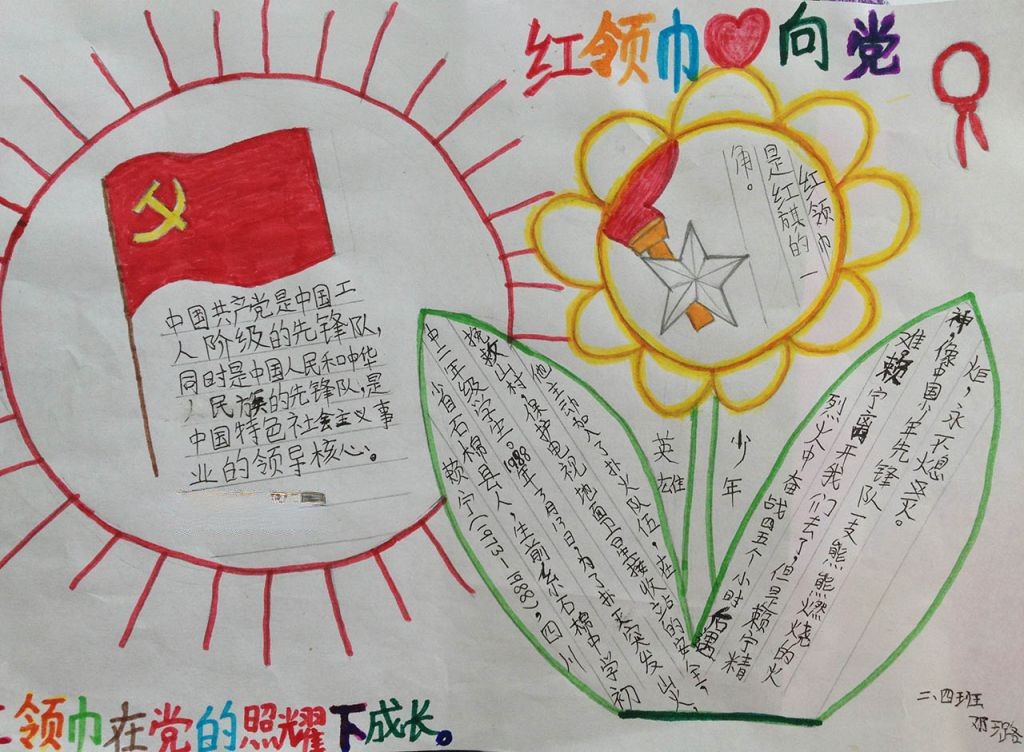 红领巾向党
中国共产党是中国工
人阶级的先锋队,
同时是中国人民和中华
人民族的先锋队,是
中国特色社会主义事
业的领导核心。
红领巾
是红旗的一
角。
英雄
少年
赖宁(1973-1988),四川
省石棉县人,生前系石棉中学初
中二年级学生。1988年3月13日,为了扑灭突发山火
挽救山村,保护电视地面卫星接收站的安全。
他主动加入了扑火队伍,在
烈火中奋战四五个小时后遇
难。赖宁离开我们去了,但是赖宁精
神,像中国少年先锋队一支熊熊燃烧的火
炬,永不熄灭。
领巾在党的照耀下成长。
二、四班
邓路